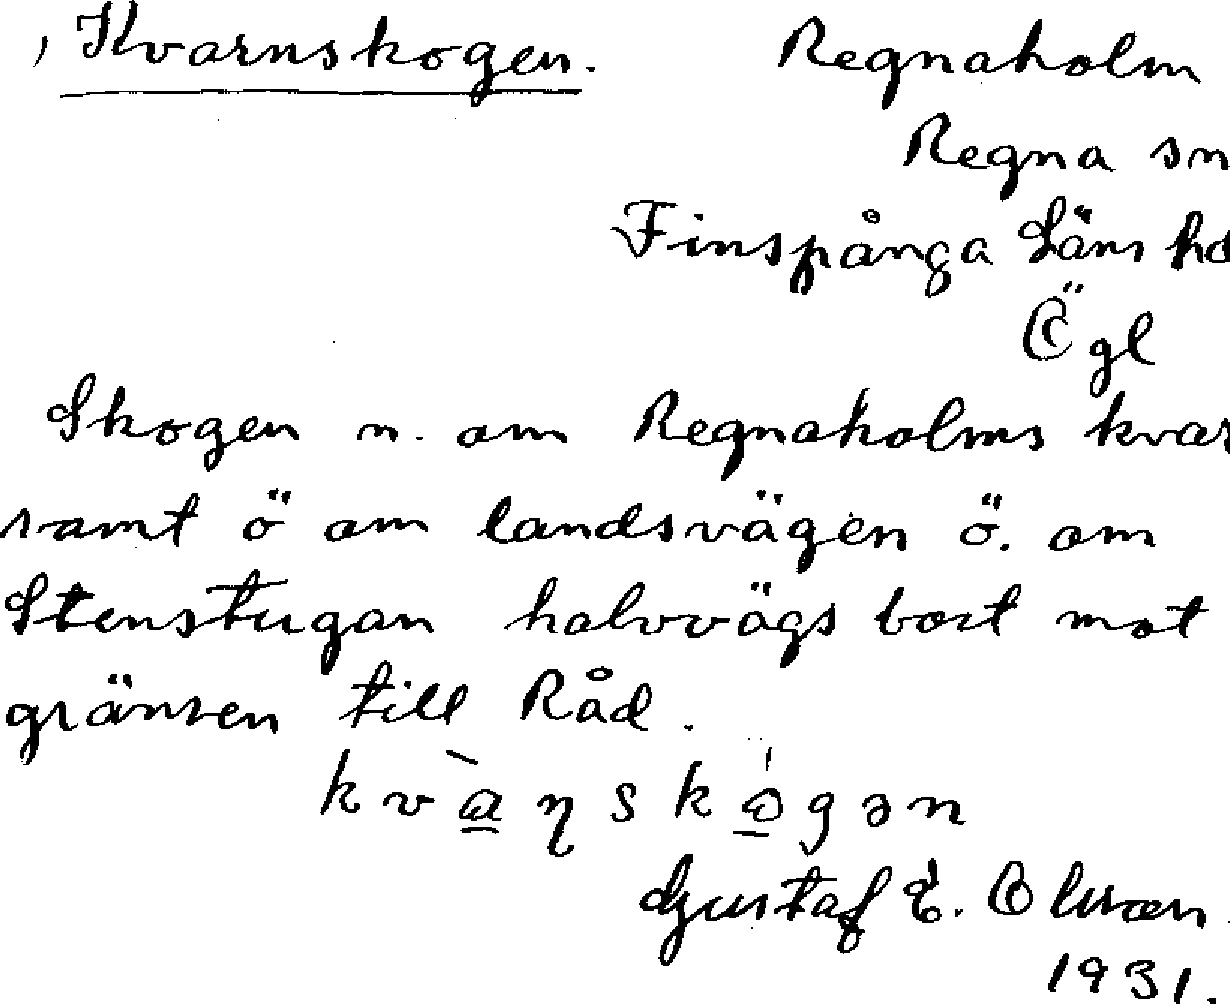 Kvarnskogen. Regnaholm
Regna sn
Finspånga Läns hd
Ögl
Skogen n. om Regnaholms kvar
samt ö om landsvägen ö. om
Stenstugan halvvägs bort mot
gränsen till Råd.
Gustaf E. Olsson.
1931.